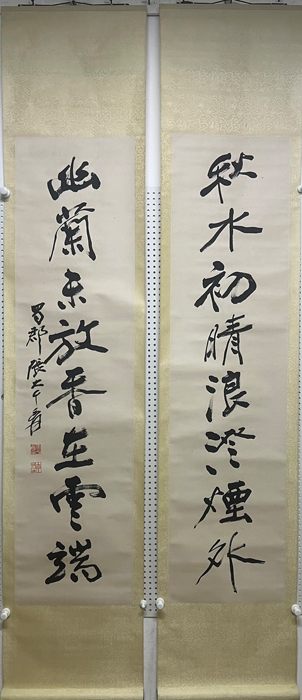 秋水初晴浪澄煙外
幽蘭未放香在雲端
蜀郡張大千爰